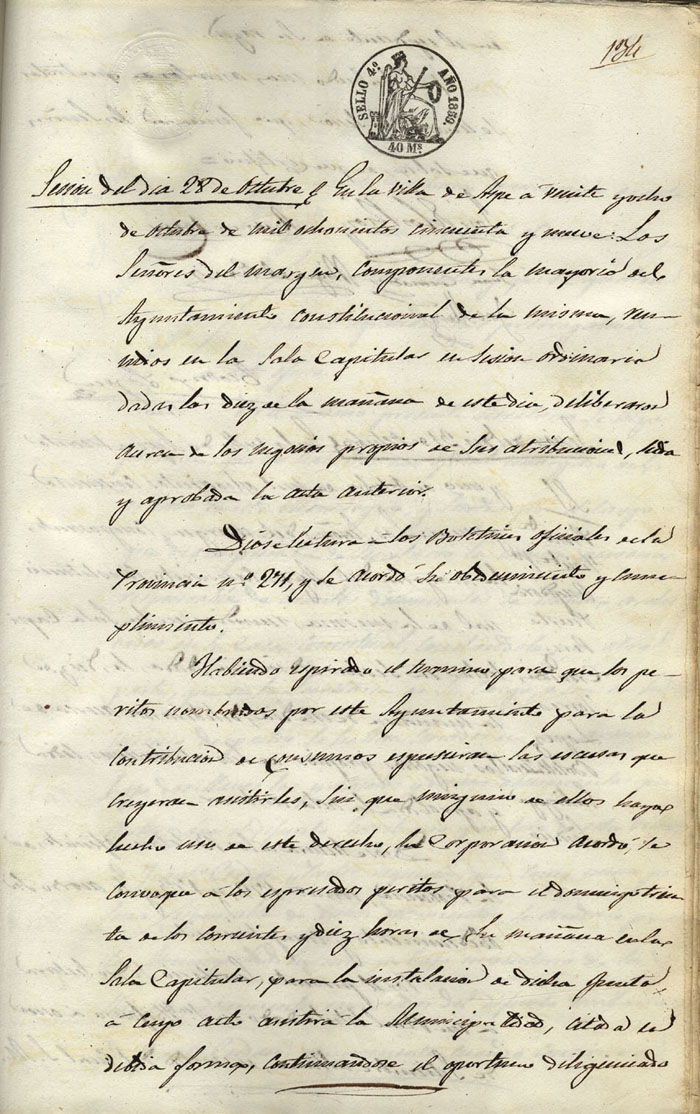 134
SELLO 4º AÑO 1859.
40 Ms.
Sesion del dia 28 de Octubre En la villa de Aspe a veinte y ocho
de Octubre de mil ochocientos cincuenta y nueve: Los
Señores del margen, componentes la mayoria del
Ayuntamiento constitucional de la misma, reu-
nidos en la Sala Capitular en sesion ordinaria
dadas las diez de la mañana de este dia, deliberaron
acerca de los negocios propios de sus atribuciones, leida
y aprobada la acta anterior.
Diose lectura a los Boletines oficiales de la
Provincia nº 271, y se acordó su obedecimiento y cum-
plimiento.
Habiendo espirado el termino para que los pe-
ritos nombrados por este Ayuntamiento para la
contribucion de consumos espusieran las escusas que
creyeran asistirles, sin que ninguno de ellos haya
hecho uso de este derecho, la Corporacion acordó, se
convoque a los espresados peritos para el domingo trein-
ta de los corrientes y diez horas de su mañana en la
Sala Capitular, para la instalacion de dicha Junta,
a cuyo acto asistirá la Municipalidad, citada en
debida forma, continuandose el oportuno diligenciado